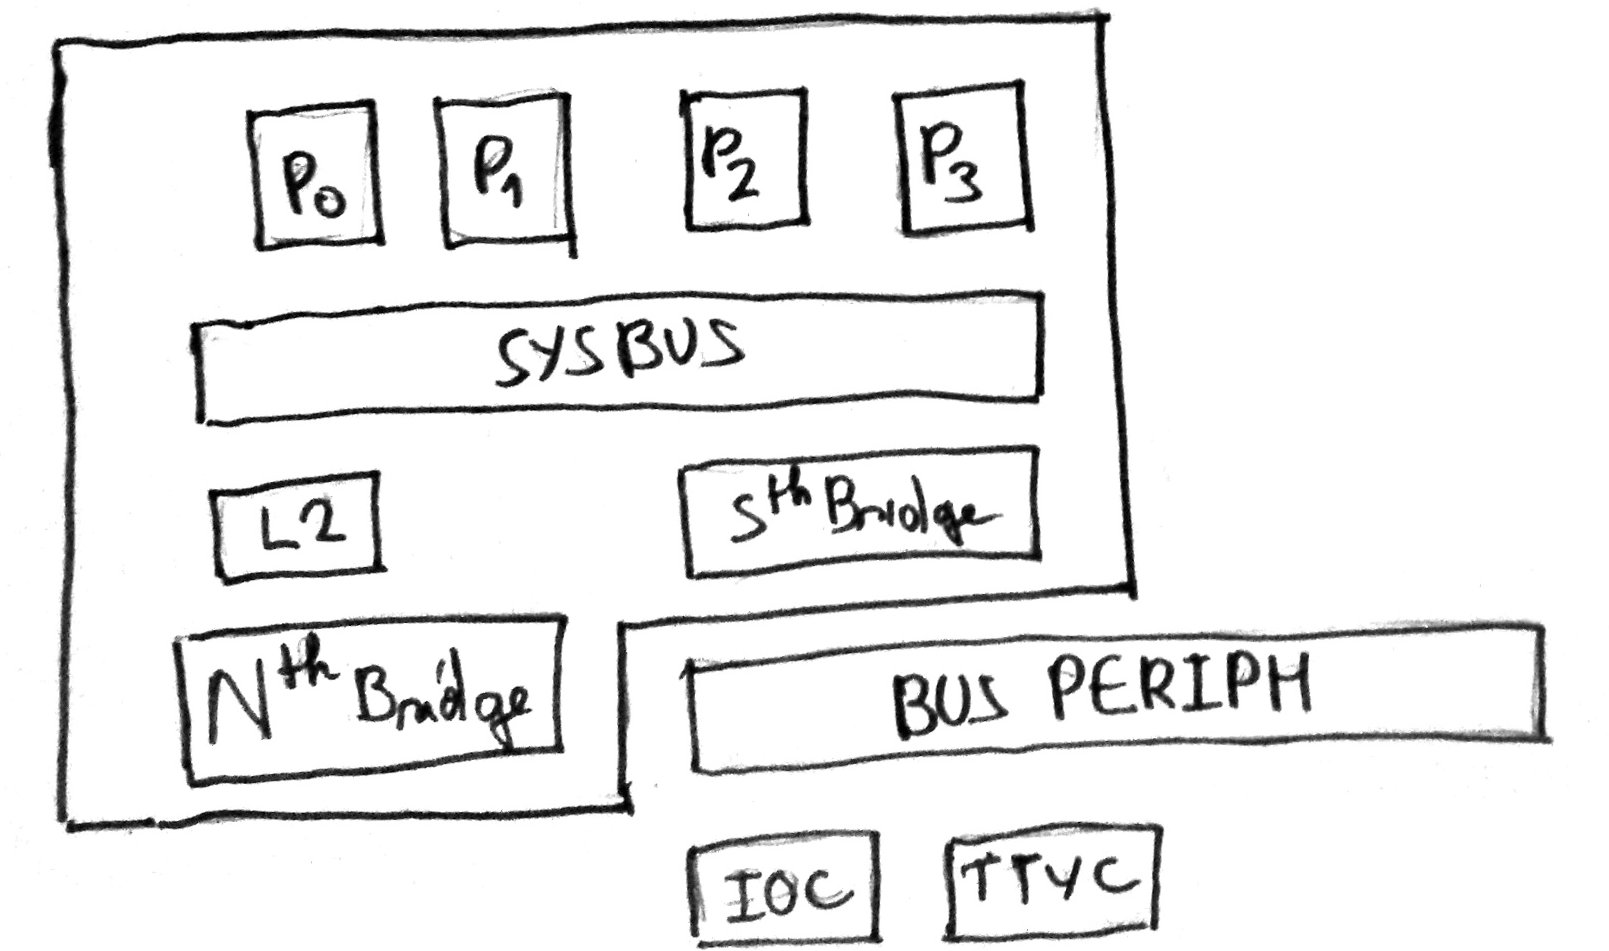 P0 P1 P2 P3
SYSBUS
L2 Sth Bridge
Nth Bridge BUS PERIPH
IOC TTYC